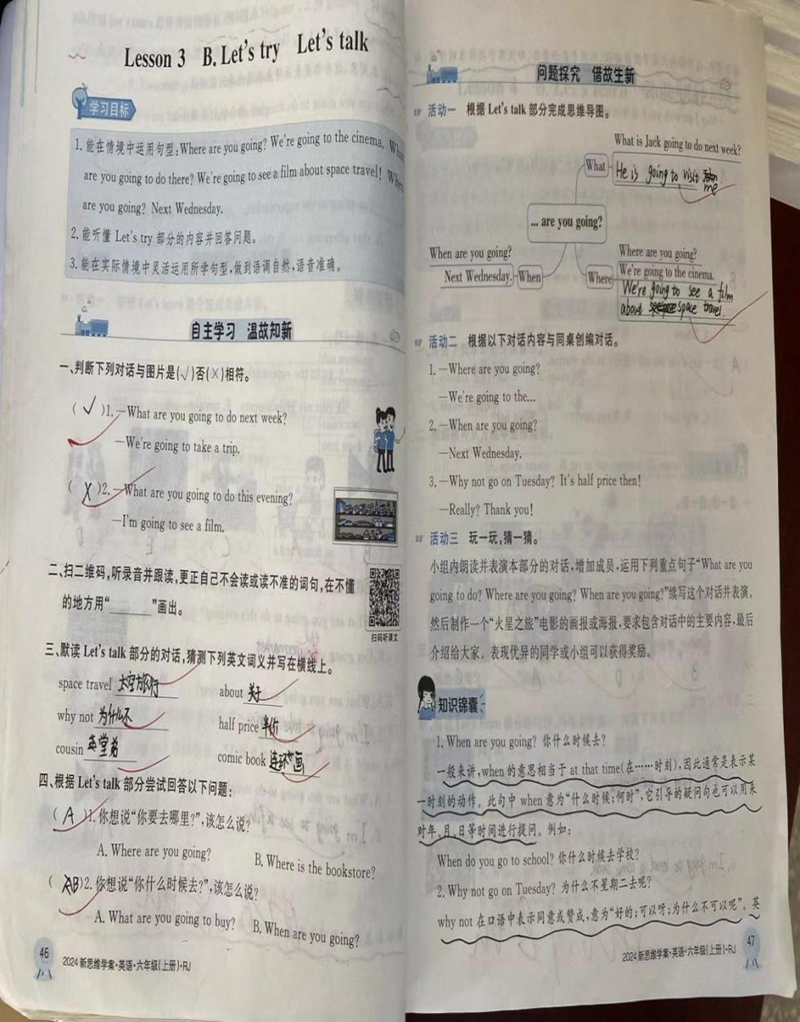 Lesson 3 B. Let's try Let's talk
学习目标
1. 能在情境中运用句型:Where are you going? We're going to the cinema.
are you going to do there? We're going to see a film about space travel!
are you going? Next Wednesday.
2. 能听懂 Let's try 部分的内容并回答问题。
3. 能在实际情境中灵活运用所学句型,做到语调自然,语音准确。
自主学习 温故知新
一、判断下列对话与图片是(√)否(×)相符。
( √ )1. —What are you going to do next week?
—We're going to take a trip.
( X )2. —What are you going to do this evening?
—I'm going to see a film.
二、扫二维码,听录音并跟读,更正自己不会读或读不准的词句,在不懂
的地方用"______"画出。
扫码听课文
三、默读 Let's talk 部分的对话,猜测下列英文词义并写在横线上。
space travel 太空旅行 about 关于
why not 为什么不 half price 半价
cousin 堂弟 comic book 连环画
四、根据 Let's talk 部分尝试回答以下问题:
( A )1. 你想说"你要去哪里?",该怎么说?
A. Where are you going? B. Where is the bookstore?
( B )2. 你想说"你什么时候去?",该怎么说?
A. What are you going to buy? B. When are you going?
46
2024 新思维学案·英语·六年级(上册)·RJ
问题探究 借故生新
活动一 根据 Let's talk 部分完成思维导图。
What is Jack going to do next week?
What
He is going to visit
me
... are you going?
When are you going?
Next Wednesday.
When
Where
Where are you going?
We're going to the cinema.
We're going to see a film
about space travel.
活动二 根据以下对话内容与同桌创编对话。
1. —Where are you going?
—We're going to the...
2. —When are you going?
—Next Wednesday.
3. —Why not go on Tuesday? It's half price then!
—Really? Thank you!
活动三 玩一玩,猜一猜。
小组内朗读并表演本部分的对话,增加成员,运用下列重点句子"What are you
going to do? Where are you going? When are you going?"续写这个对话并表演。
然后制作一个"火星之旅"电影的画报或海报,要求包含对话中的主要内容,最后
介绍给大家。表现优异的同学或小组可以获得奖励。
知识锦囊
1. When are you going? 你什么时候去?
一般来讲,when 的意思相当于 at that time(在……时刻),因此通常是表示某
一时刻的动作。此句中 when 意为"什么时候;何时",它引导的疑问句也可以用来
对年、月、日等时间进行提问。例如:
When do you go to school? 你什么时候去学校?
2. Why not go on Tuesday? 为什么不星期二去呢?
why not 在口语中表示同意或赞成,意为"好的;可以呀;为什么不可以呢"。英
47
2024 新思维学案·英语·六年级(上册)·RJ